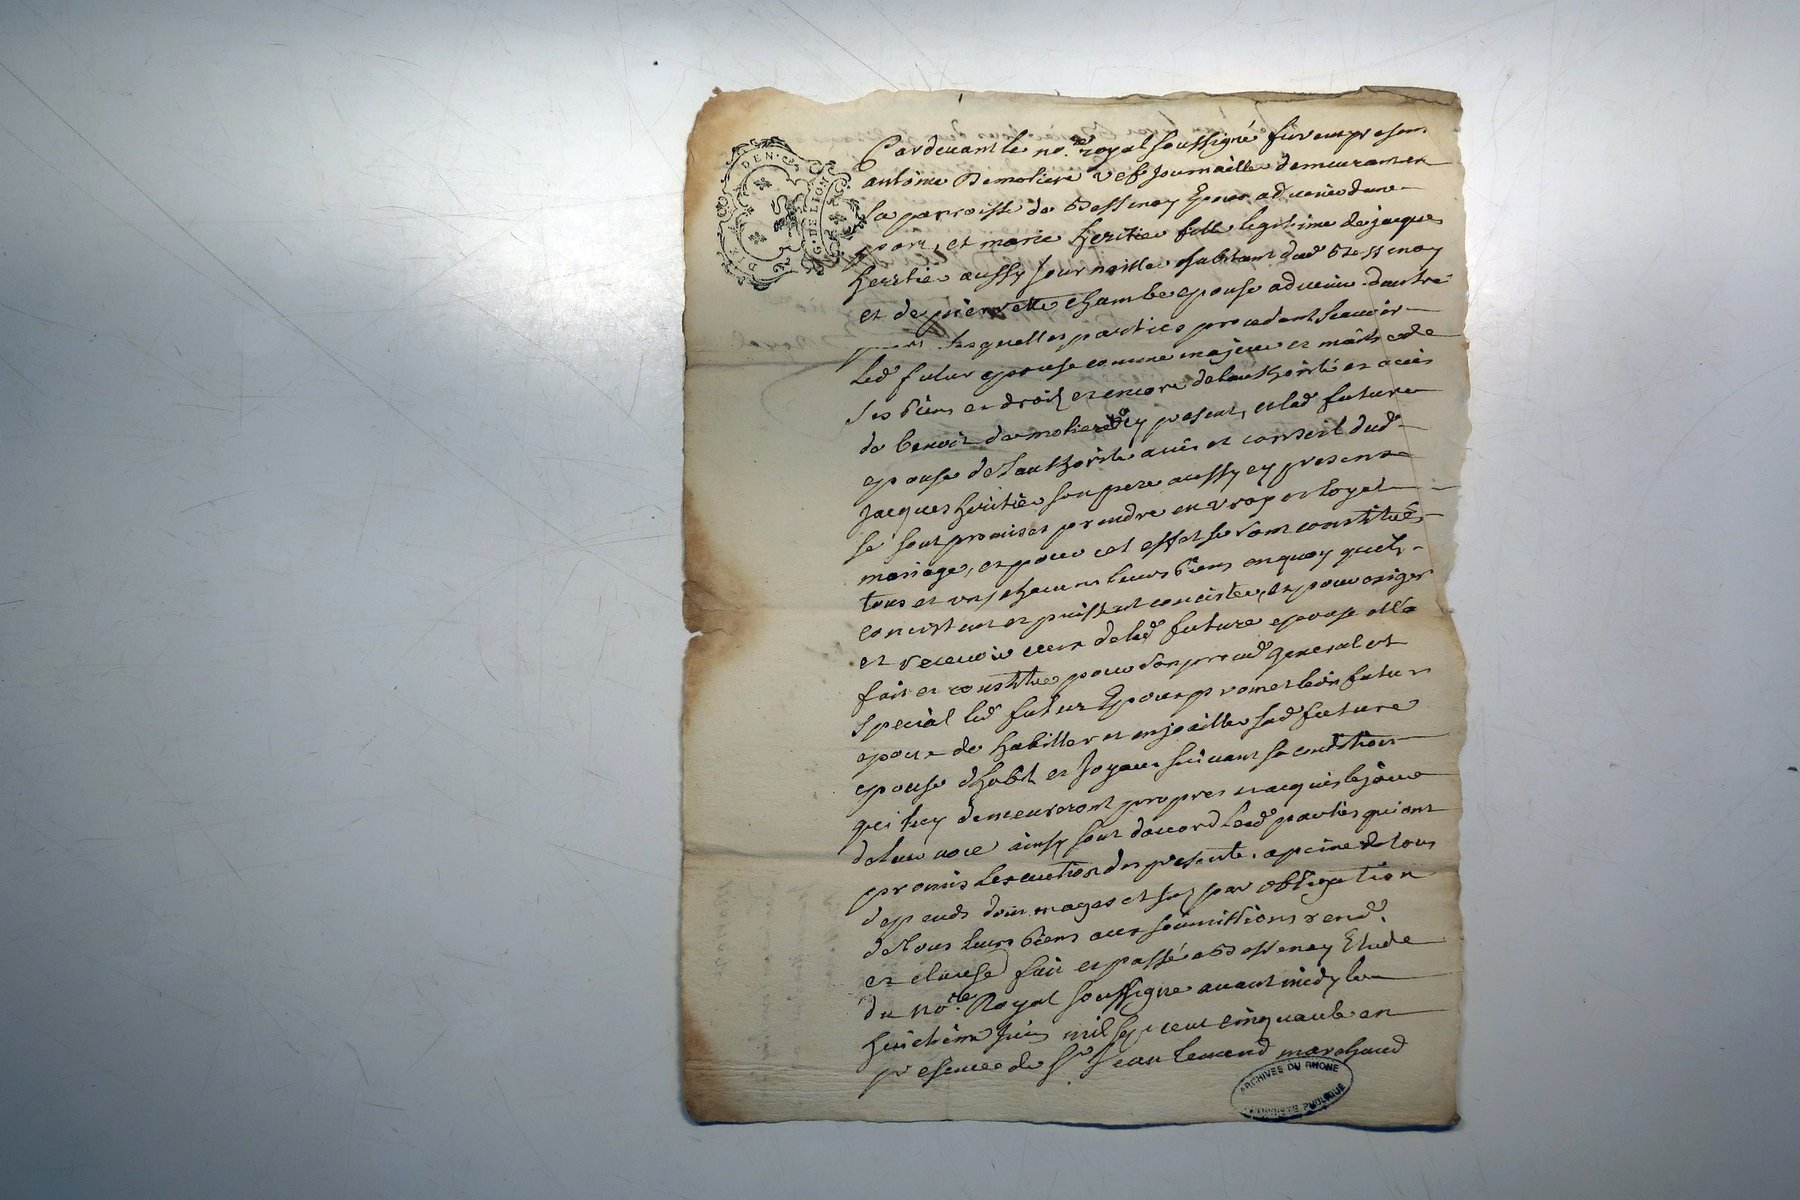 DEUX DEN.
G. DE LION
Pardevant le no.re royal soussigné furent presen
antoine Demoliere vef journaillier demeurant en
la parroisse de Bessenay Epoux advenir dune
part, et marie heritier fille legitime de jacque
heritier aussy journaillier habitant dud Bessenay
et de pierrette chambe epouse advenir dautre
part lesquelles parties procedant scavoir
led futur epouse comme majeur et maitre de
ses biens et droits et encore de lauthorité et avis
de benoit demoliere icy present, et lad future
epouse de lauthorité avis et conseil dud
jacques heritier son pere aussy cy present
se sont promises prendre en vray et loyal
mariage, et pour cet effet se sont constitués
tous et un chacuns leurs biens en quoy quils
concistent et puissent concister, et pour exiger
et recevoir ceux de lad future epouse ella
fait et constitue pour son procd general et
special led futur Epoux promet led futur
epoux de habiller et enjoailler sad future
epouse dhabit et joyaux suivant sa condition
qui luy demeureront propres et acquis le jour
de leur noce ainsy sont daccord lesd parties qui ont
promis lexecution des presente, a peine de tous
depends dommages et int par obligation
de tous leurs biens aux soumissions rend.
et clauses fait et passé a Bessenay Etude
du no.re Royal soussigne avant midy le
huictieme juin mil sept cent cinquante en
presence de sr jean marchand
ARCHIVES DU RHONE
PUBLIQUE